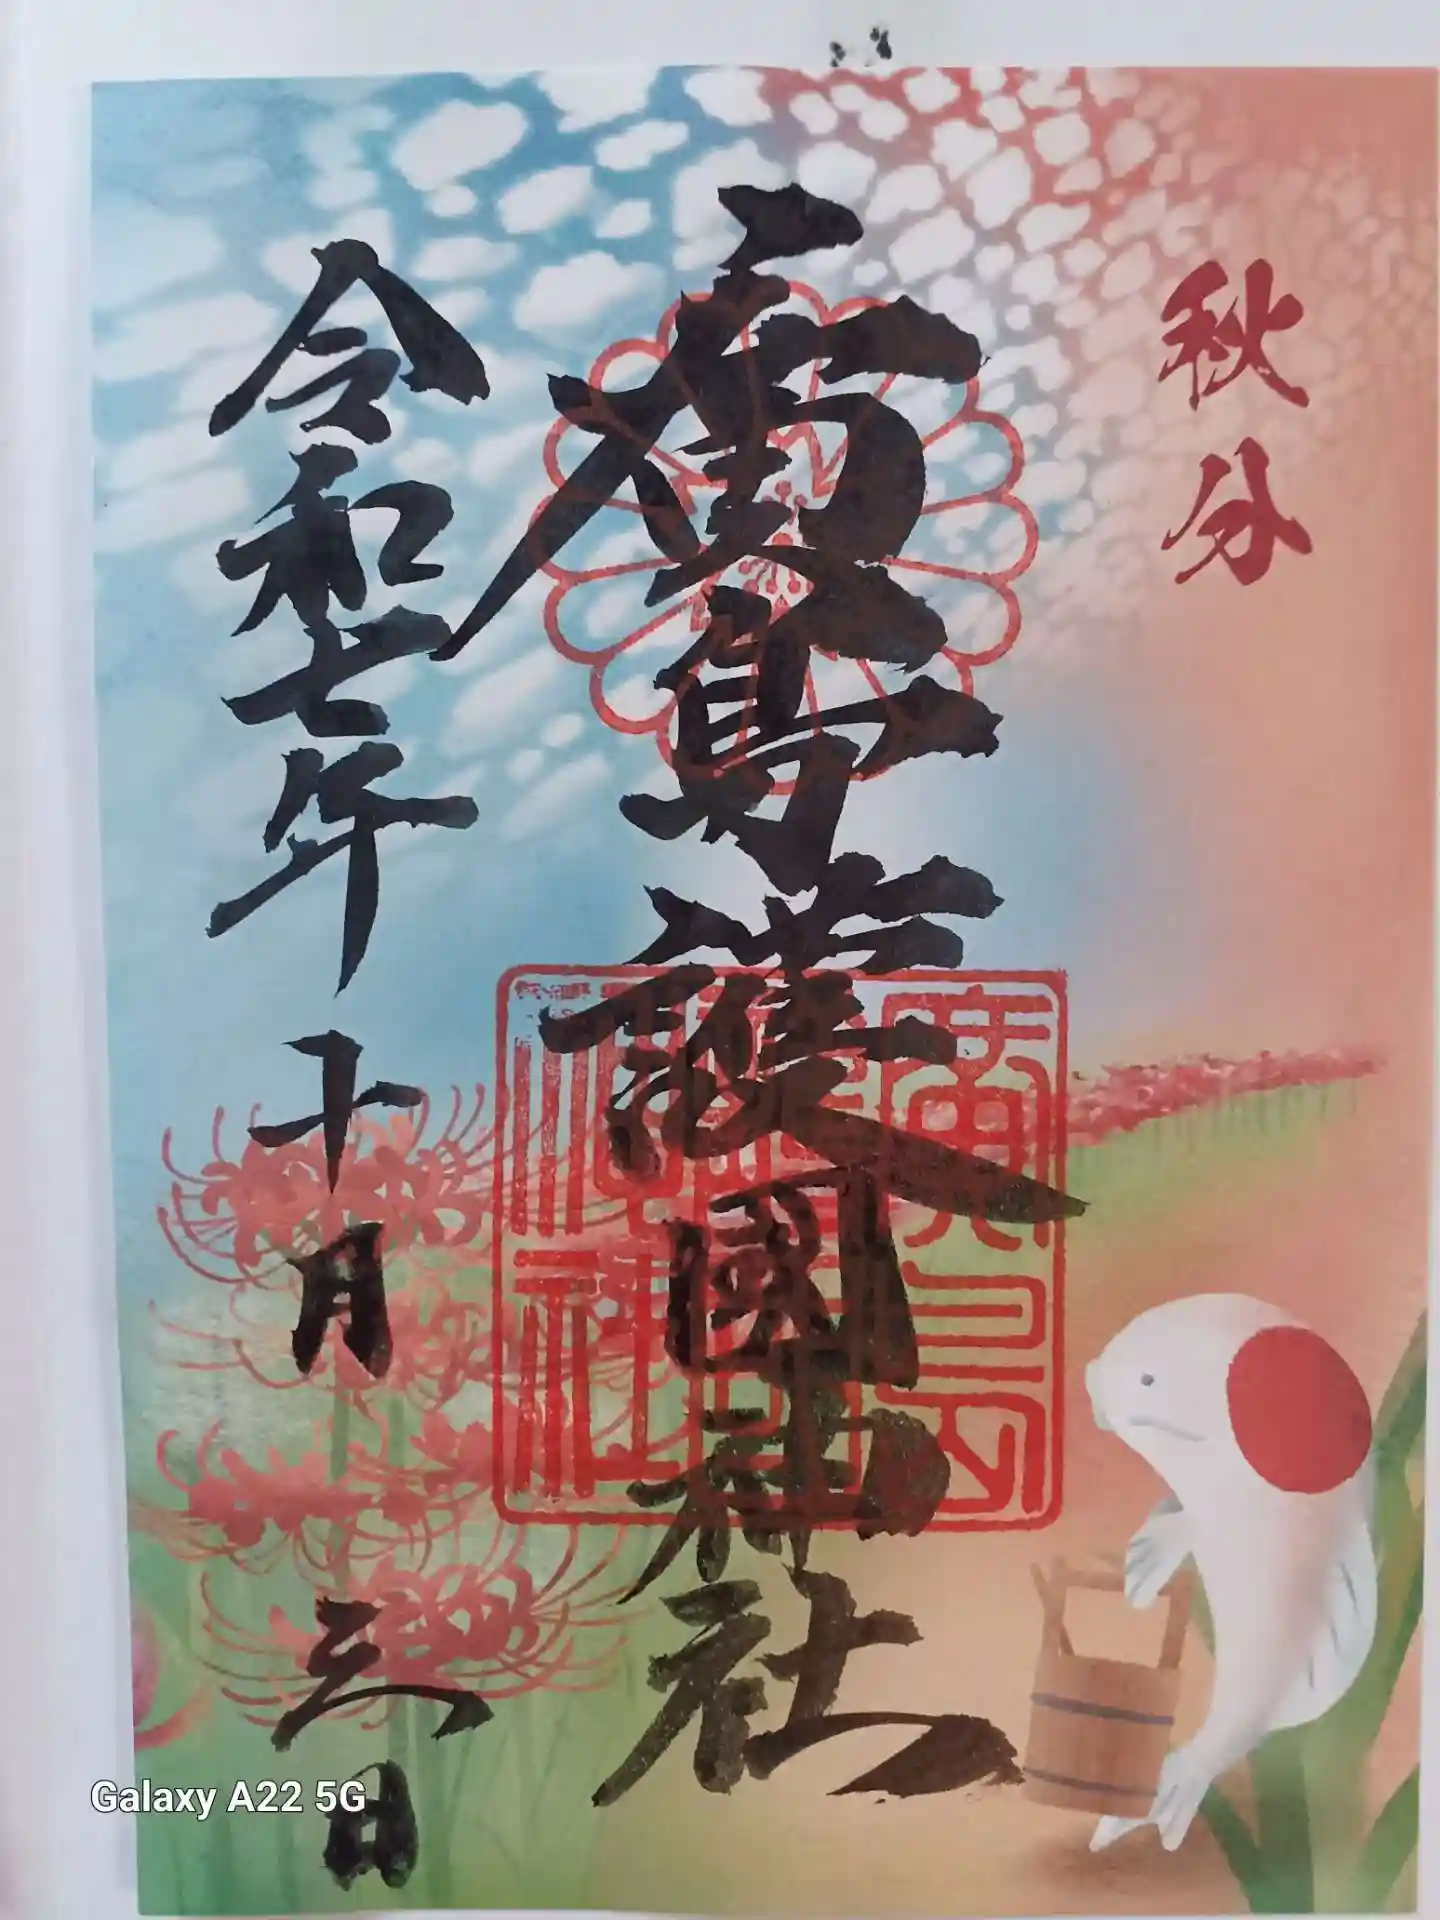 秋分
廣島護國神社
令和七年十月三日
廣島
護國
神社
Galaxy A22 5G